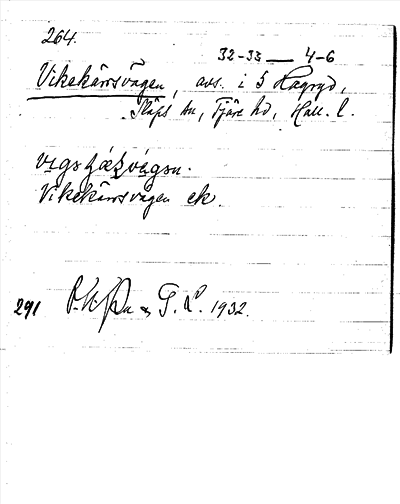 264.
32-33 — 4-6
Vikekärrsvägen, avs. i 5 Hagryd,
Släps sn, Fjäre hd, Hall. l.
Vikekärrsvägen ek.
291 T. L. 1932.